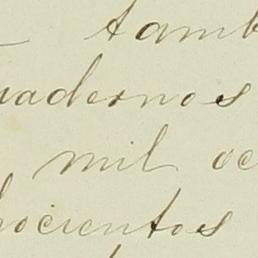 tamb
uadernos
mil oc
hocientos